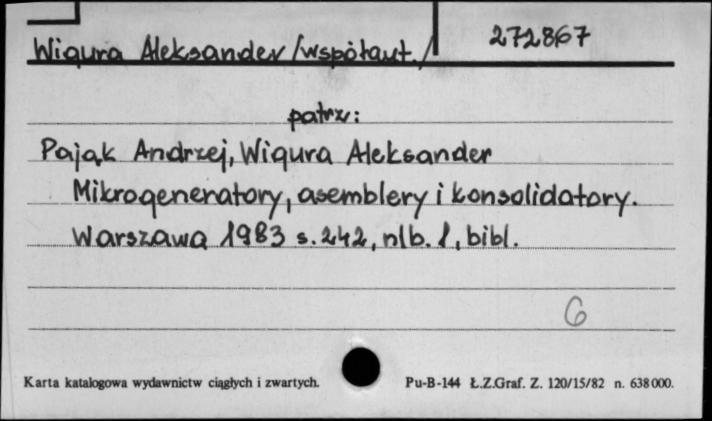 Wigura Aleksander /współaut./ 272867
patrz:
Pająk Andrzej, Wigura Aleksander
Mikrogeneratory, asemblery i konsolidatory.
Warszawa 1983 s. 242, nlb. 1, bibl.
6
Karta katalogowa wydawnictw ciągłych i zwartych. Pu-B-144 Ł.Z.Graf. Z. 120/15/82 n. 638000.